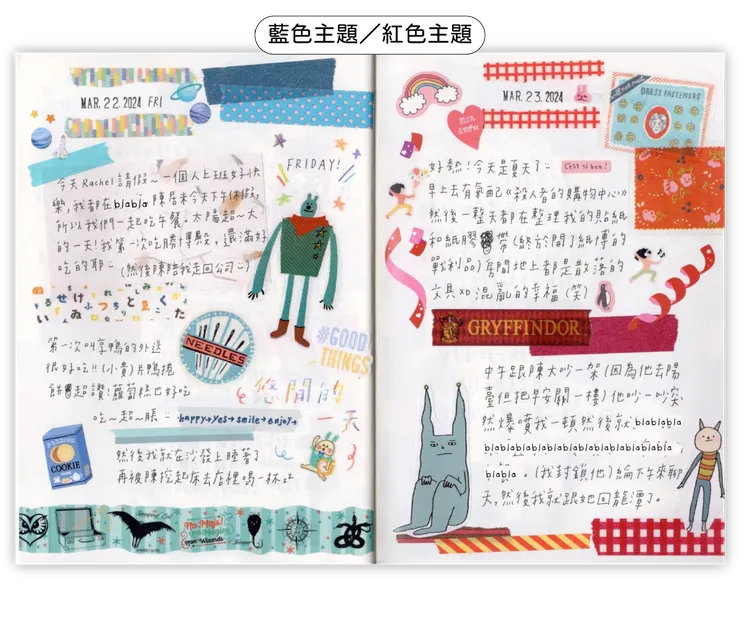 藍色主題／紅色主題
MAR. 22. 2024 FRI
FRIDAY!
今天 Rachel 請假~一個人上班好快
樂,我都在 blabla 陳居米今天下午休假,
所以我們一起吃午餐。太陽超~大
的一天!我第一次吃勝博殿,還滿好
吃的耶 (然後陳陪我走回公司
NEEDLES
#GOOD
THINGS
第一次叫享鴨的外送
很好吃!!(小貴)片鴨捲
餅超讚!蘿蔔糕也好吃
吃~超~脹
悠閒的
一天
happy→yes→smile→enjoy→
COOKIE
然後我就在沙發上睡著了
再被陳挖起床去店裡喝一杯
No-Majs!
non Wizards
MAR. 23. 2024
DRESS FASTENERS
mon
amour
好熱!今天是夏天了
C'est si bon!
早上去有氧配《殺人者的購物中心》
然後一整天都在整理我的貼紙
和紙膠帶(終於開了紙博的
戰利品)房間地上都是散落的
文具XD 混亂的幸福(笑)
GRYFFINDOR
中午跟陳大吵一架(因為他去陽
臺但把早安關一樓)他吵一吵突
然爆噴我一頓然後就 blablabla
blablablablablablablablablablabla,
blabla。(我封鎖他)綸下午來聊
天,然後我就跟她回龍潭了。